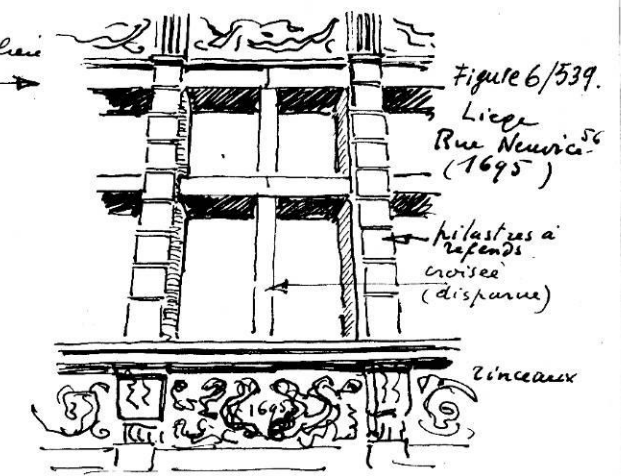 Figure 6/539.
Liege
Rue Neuvice 56
(1695)
pilastres à
refends
croisée
(disparue)
rinceaux
1695